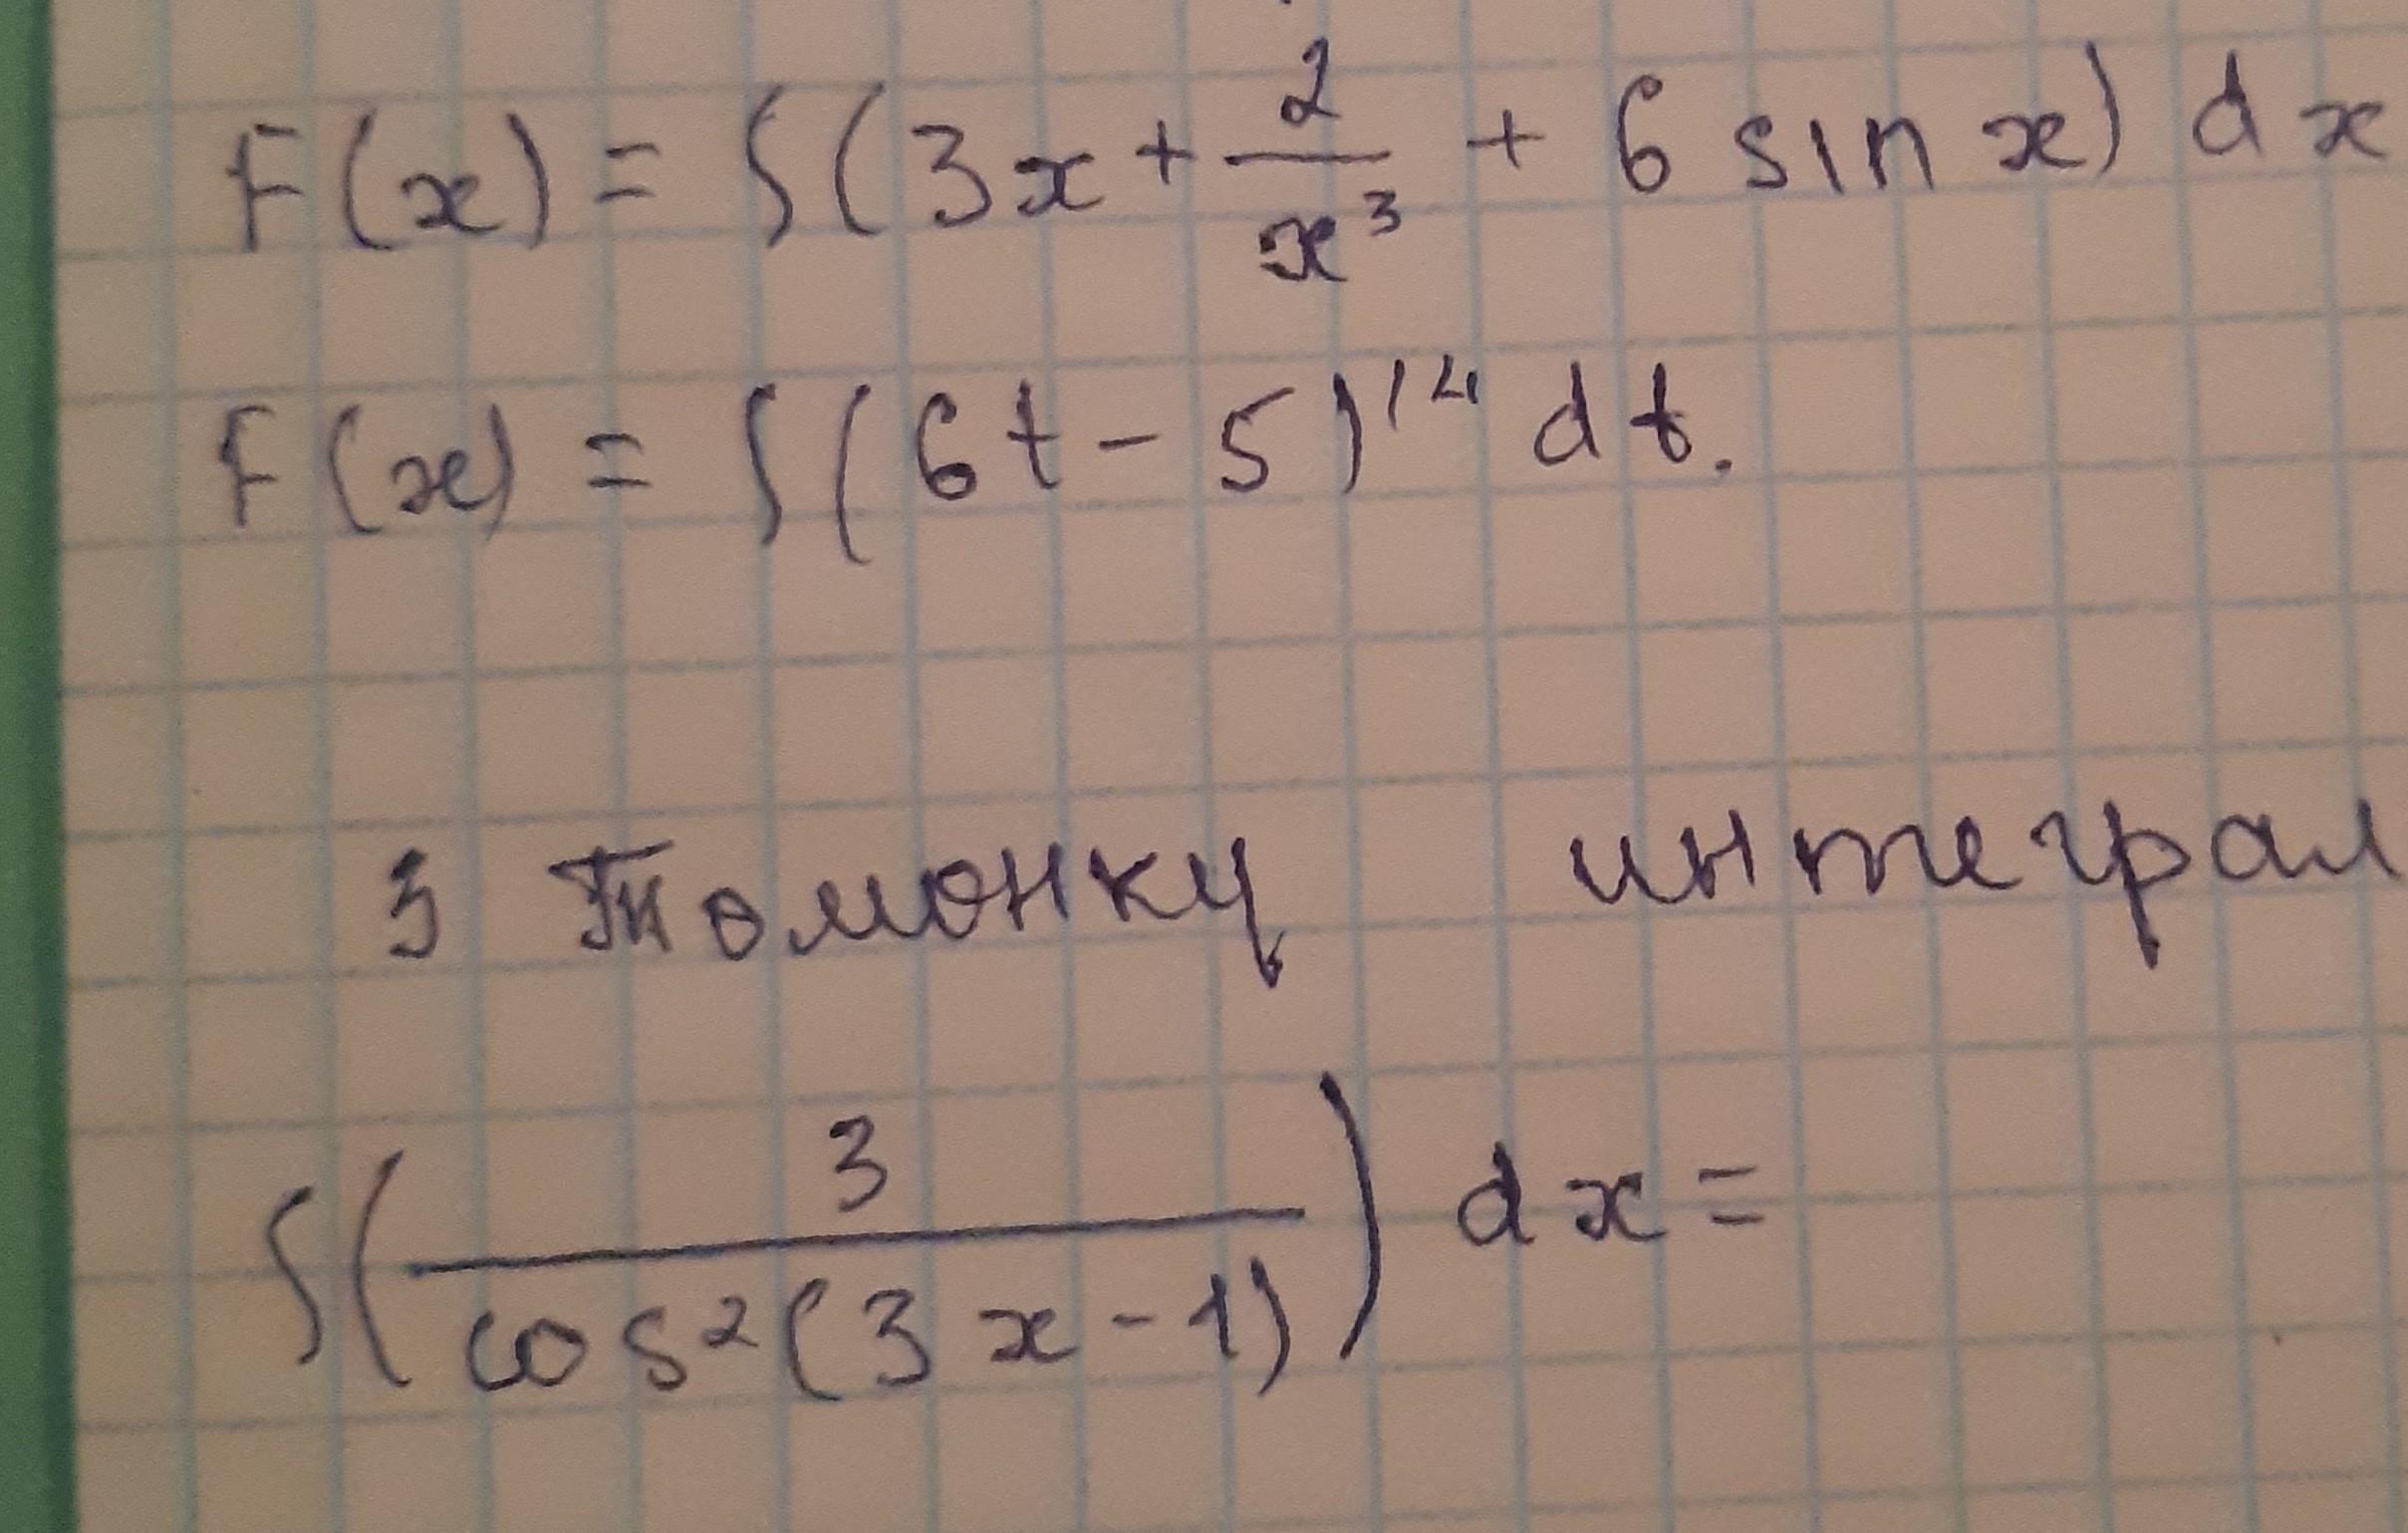 F(x) = ∫(3x + 2/x³ + 6 sin x) dx
F(x) = ∫(6t - 5)¹⁴ dt.
3 интеграл
∫(3/cos²(3x-1)) dx =